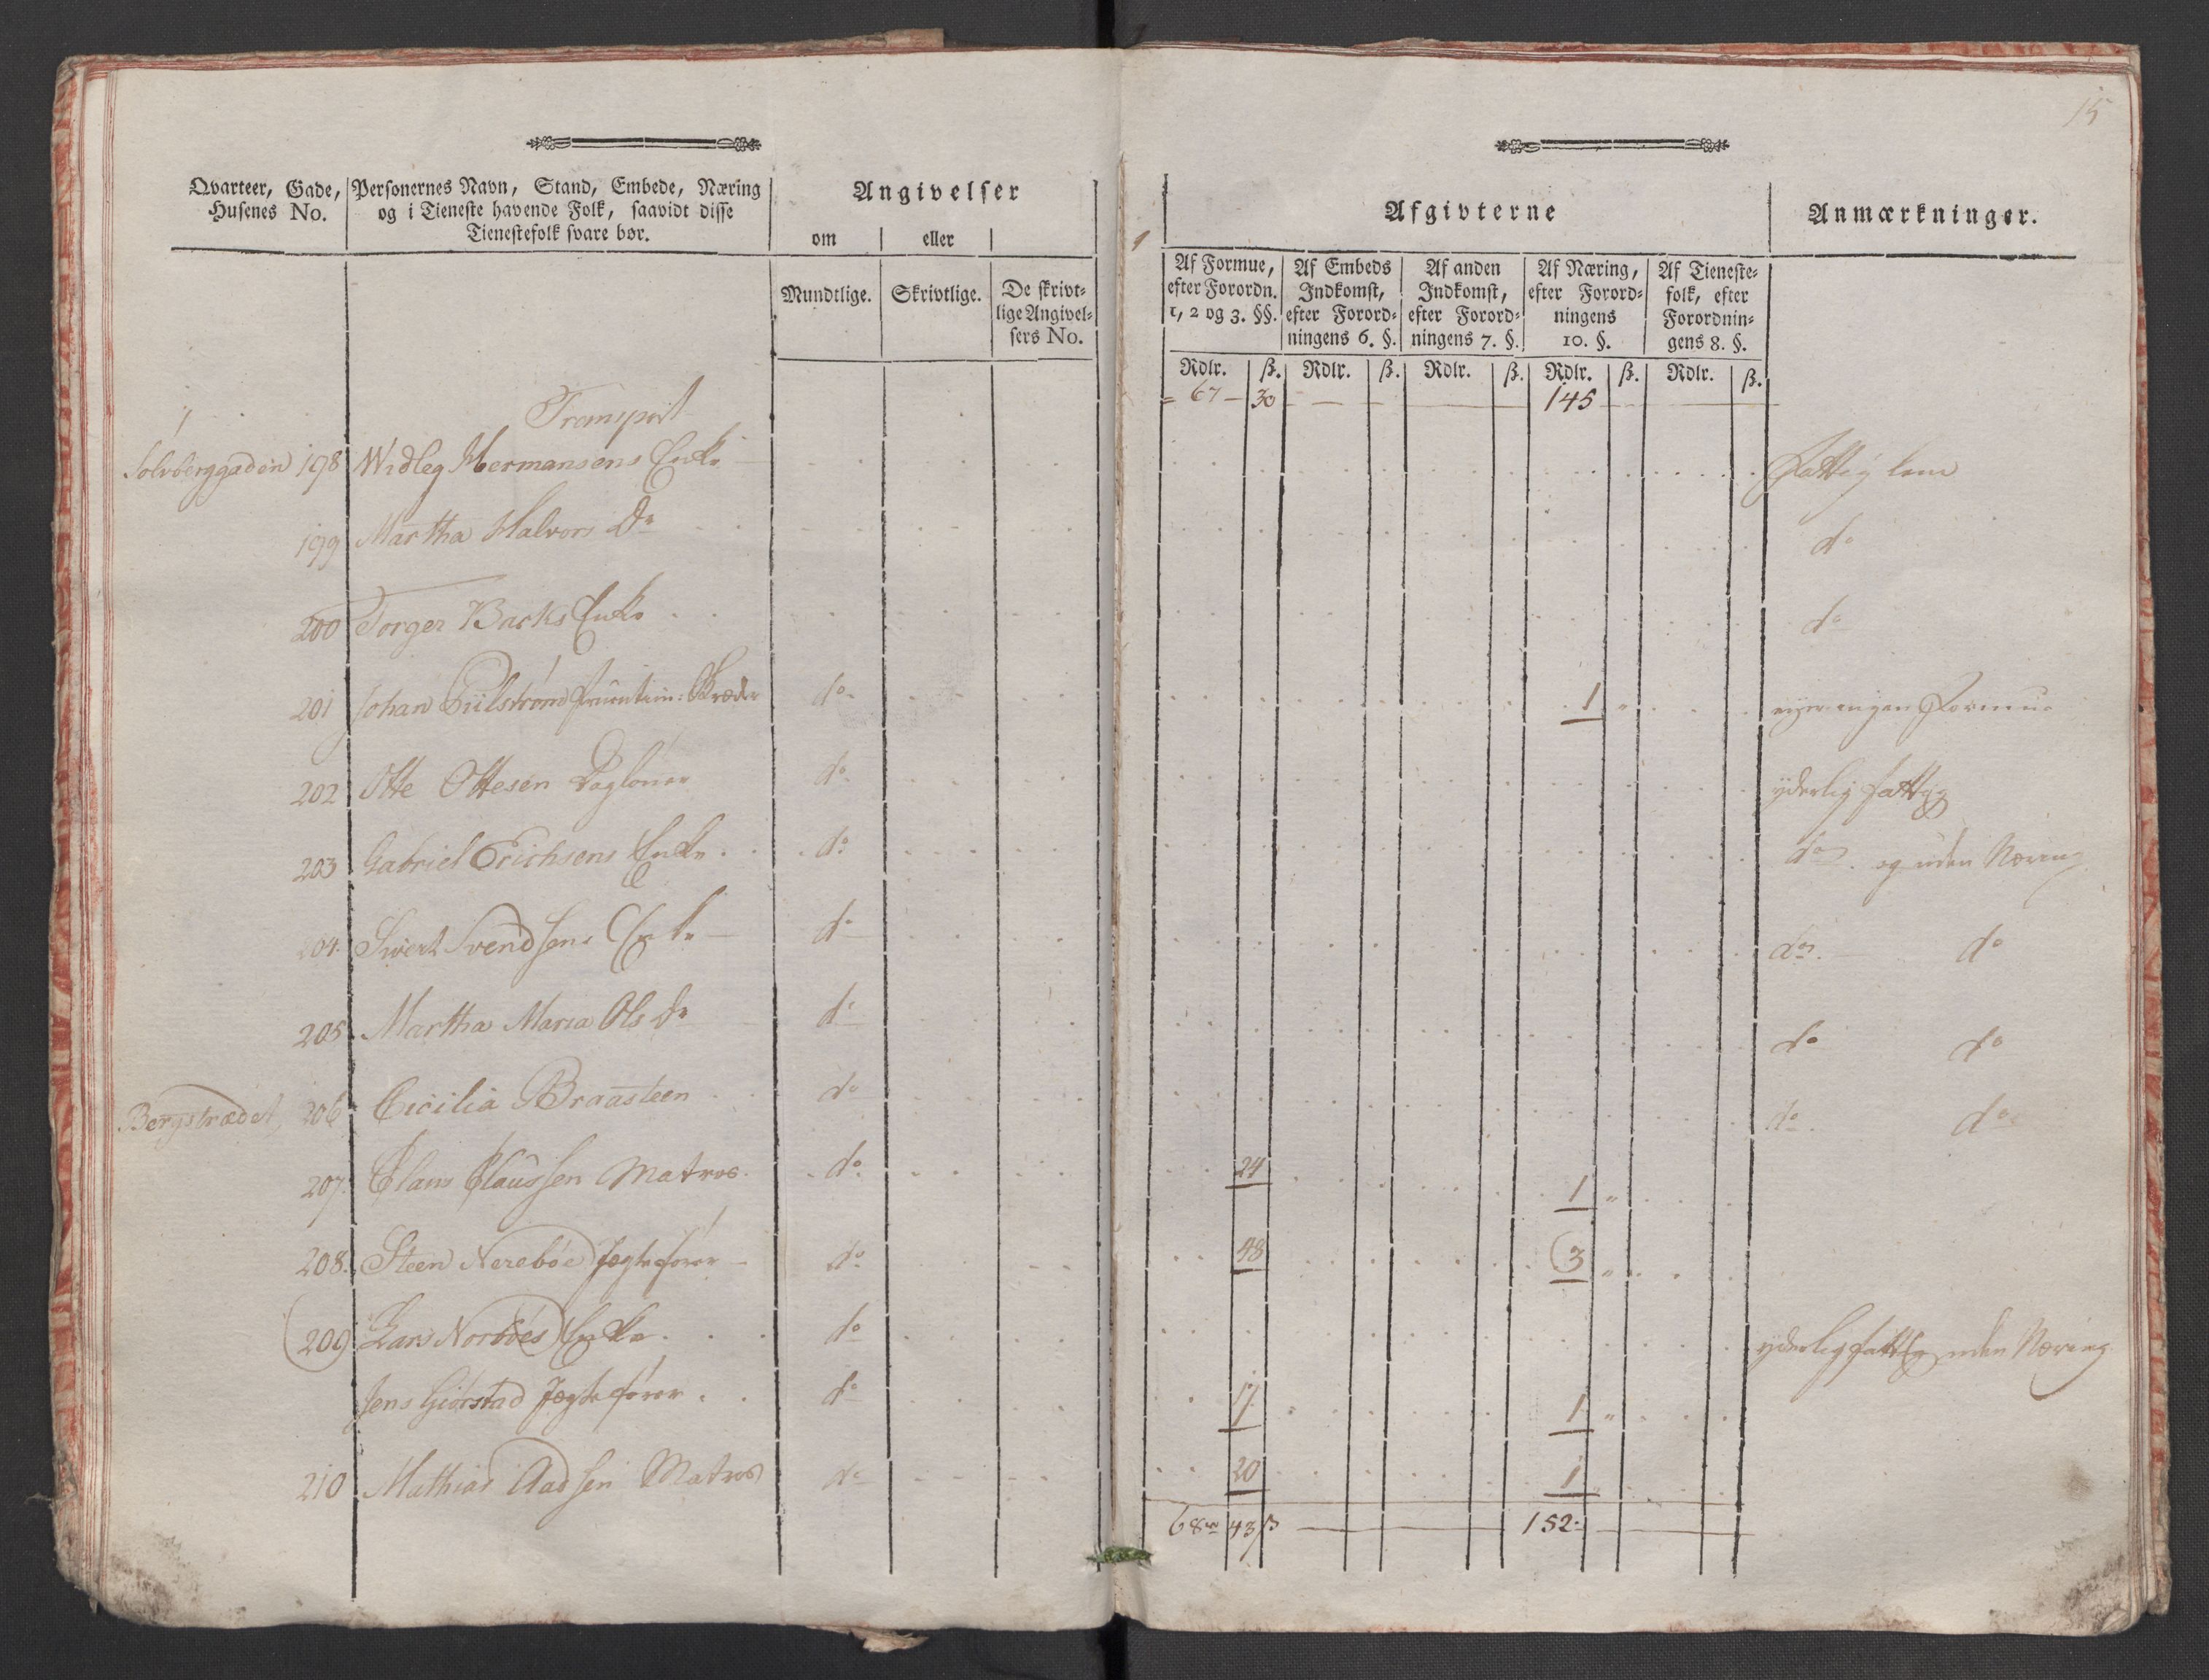 15
Qvarteer, Gade, Husenes No.
Personernes Navn, Stand, Embede, Næring
og i Tieneste havende Folk, saavidt disse
Tienestefolk svare bør.
Angivelser
om eller
Mundtlige. Skrivtlige. De skrivt-
lige Angivel-
sers No.
Afgivterne
Anmærkninger.
Af Formue,
efter Forordn.
1, 2 og 3. §§.
Af Embeds
Indkomst,
efter Forord-
ningens 6. §.
Af anden
Indkomst,
efter Forord-
ningens 7. §.
Af Næring,
efter Forord-
ningens
10. §.
Af Tieneste-
folk, efter
Forordnin-
gens 8. §.
Rdlr. ß. Rdlr. ß. Rdlr. ß. Rdlr. ß. Rdlr. ß.
Transport 67 30 145
Sølvberggaden 198 Widleg Hermansens Enke Fattig lem
199 Martha Halvors Dr do
200 Torger Backs Enke do
201 Johan Piilstrøm Skræder do 1 " ejer ingen Formue
202 Otte Ottesen Dagløner do yderlig fattig
203 Gabriel Erichsens Enke do do og uden Næring
204 Sivert Svendsens Enke do do do
205 Martha Maria Ols Dr do do do
Bergstrædet 206 Cicilia Braasteen do do do
207 Claus Claussen Matros do 24 1 "
208. Steen Nerebøe Jægtefører do 48 3 "
209 Lars Norbøes Enke do yderlig fattig uden Næring
Jens Giørstad Jægtefører do 17 1 "
210 Mathias Aadsen Matros do 20 1
68 43 ß 152